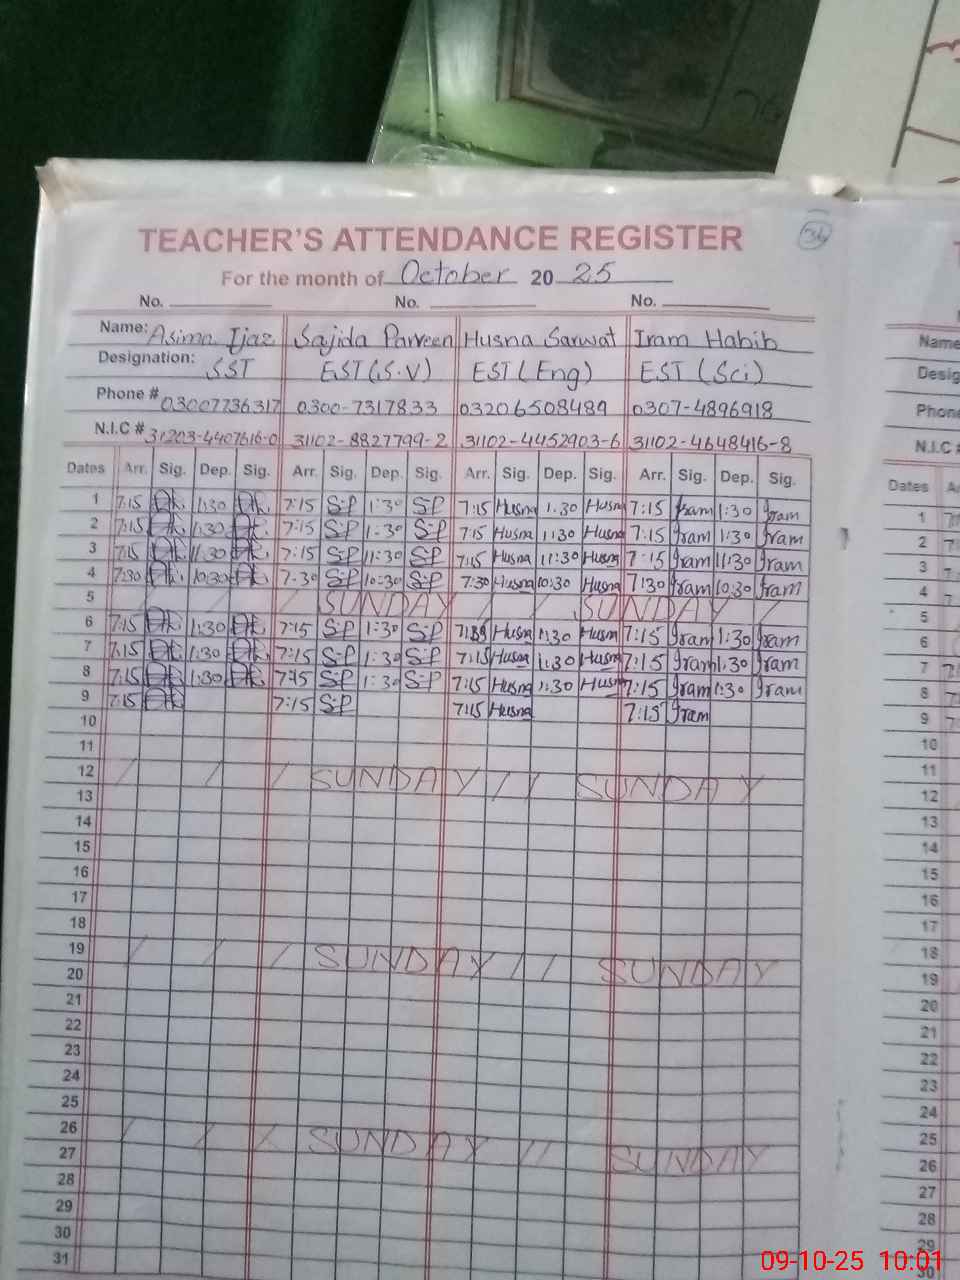 TEACHER'S ATTENDANCE REGISTER
For the month of October 20 25
No. No. No.
Name: Asima Ijaz Sajida Parveen Husna Sarwat Iram Habib
Designation: SST EST(S.V) EST(Eng) EST(Sci)
Phone # 03007736317 0300-7317833 03206508489 0307-4896918
N.I.C # 31203-4407616-0 31102-8827799-2 31102-4452903-6 31102-4648416-8
Dates Arr. Sig. Dep. Sig. Arr. Sig. Dep. Sig. Arr. Sig. Dep. Sig. Arr. Sig. Dep. Sig.
1 7:15 1:30 7:15 S.P 1:30 S.P 7:15 Husna 1:30 Husna 7:15 Iram 1:30 Iram
2 7:15 1:30 7:15 S.P 1:30 S.P 7:15 Husna 1:30 Husna 7:15 Iram 1:30 Iram
3 7:15 11:30 7:15 S.P 11:30 S.P 7:15 Husna 11:30 Husna 7:15 Iram 11:30 Iram
4 7:30 10:30 7:30 S.P 10:30 S.P 7:30 Husna 10:30 Husna 7:30 Iram 10:30 Iram
5 SUNDAY SUNDAY
6 7:15 1:30 7:15 S.P 1:30 S.P Husna 1:30 Husna 7:15 Iram 1:30 Iram
7 7:15 1:30 7:15 S.P 1:30 S.P 7:15 Husna 1:30 Husna 7:15 Iram 1:30 Iram
8 7:15 1:30 7:15 S.P 1:30 S.P 7:15 Husna 1:30 Husna 7:15 Iram 1:30 Iram
9 7:15 7:15 S.P 7:15 Husna 7:15 Iram
10
11
12 SUNDAY SUNDAY
13
14
15
16
17
18
19 SUNDAY SUNDAY
20
21
22
23
24
25
26 SUNDAY SUNDAY
27
28
29
30
31
Name
Desig
Phone
N.I.C #
Dates
1
2
3
4
5
6
7
8
9
10
11
12
13
14
15
16
17
18
19
20
21
22
23
24
25
26
27
28
29
30
09-10-25 10:01